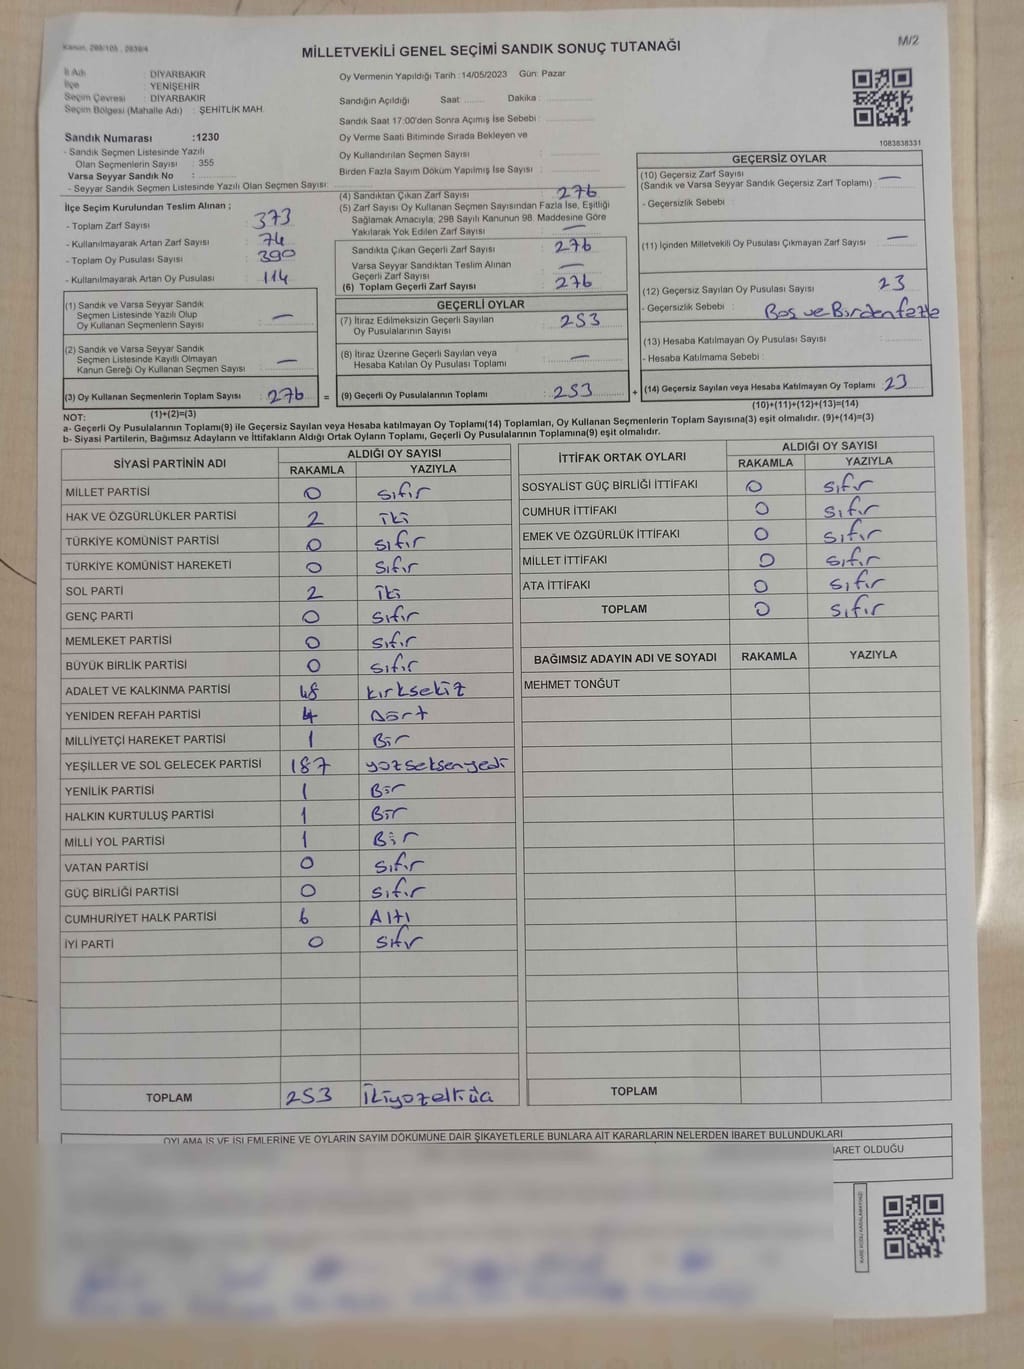 Kanun, 298/105 , 2839/4
MİLLETVEKİLİ GENEL SEÇİMİ SANDIK SONUÇ TUTANAĞI
M/2
İl Adı : DİYARBAKIR
İlçe : YENİŞEHİR
Seçim Çevresi : DİYARBAKIR
Seçim Bölgesi (Mahalle Adı) : ŞEHİTLİK MAH.
Sandık Numarası :1230
- Sandık Seçmen Listesinde Yazılı
Olan Seçmenlerin Sayısı : 355
Varsa Seyyar Sandık No :
- Seyyar Sandık Seçmen Listesinde Yazılı Olan Seçmen Sayısı:
Oy Vermenin Yapıldığı Tarih :14/05/2023 Gün: Pazar
Sandığın Açıldığı Saat ........ Dakika :
Sandık Saat 17:00'den Sonra Açımış İse Sebebi :
Oy Verme Saati Bitiminde Sırada Bekleyen ve
Oy Kullandırılan Seçmen Sayısı :
Birden Fazla Sayım Döküm Yapılmış İse Sayısı :
1083838331
İlçe Seçim Kurulundan Teslim Alınan ;
- Toplam Zarf Sayısı : 373
- Kullanılmayarak Artan Zarf Sayısı : 74
- Toplam Oy Pusulası Sayısı : 390
- Kullanılmayarak Artan Oy Pusulası : 114
(1) Sandık ve Varsa Seyyar Sandık
Seçmen Listesinde Yazılı Olup
Oy Kullanan Seçmenlerin Sayısı : —
(2) Sandık ve Varsa Seyyar Sandık
Seçmen Listesinde Kayıtlı Olmayan
Kanun Gereği Oy Kullanan Seçmen Sayısı : —
(3) Oy Kullanan Seçmenlerin Toplam Sayısı : 276
(1)+(2)=(3)
(4) Sandıktan Çıkan Zarf Sayısı : 276
(5) Zarf Sayısı Oy Kullanan Seçmen Sayısından Fazla İse, Eşitliği
Sağlamak Amacıyla, 298 Sayılı Kanunun 98. Maddesine Göre
Yakılarak Yok Edilen Zarf Sayısı : —
Sandıkta Çıkan Geçerli Zarf Sayısı : 276
Varsa Seyyar Sandıktan Teslim Alınan
Geçerli Zarf Sayısı : —
(6) Toplam Geçerli Zarf Sayısı : 276
GEÇERLİ OYLAR
(7) İtiraz Edilmeksizin Geçerli Sayılan
Oy Pusulalarının Sayısı : 253
(8) İtiraz Üzerine Geçerli Sayılan veya
Hesaba Katılan Oy Pusulası Toplamı : —
= (9) Geçerli Oy Pusulalarının Toplamı : 253
GEÇERSİZ OYLAR
(10) Geçersiz Zarf Sayısı
(Sandık ve Varsa Seyyar Sandık Geçersiz Zarf Toplamı) : —
- Geçersizlik Sebebi :
(11) İçinden Milletvekili Oy Pusulası Çıkmayan Zarf Sayısı : —
(12) Geçersiz Sayılan Oy Pusulası Sayısı : 23
- Geçersizlik Sebebi : Boş ve Birdenfazla
(13) Hesaba Katılmayan Oy Pusulası Sayısı :
- Hesaba Katılmama Sebebi :
+ (14) Geçersiz Sayılan veya Hesaba Katılmayan Oy Toplamı : 23
(10)+(11)+(12)+(13)=(14)
NOT:
a- Geçerli Oy Pusulalarının Toplamı(9) ile Geçersiz Sayılan veya Hesaba katılmayan Oy Toplamı(14) Toplamları, Oy Kullanan Seçmenlerin Toplam Sayısına(3) eşit olmalıdır. (9)+(14)=(3)
b- Siyasi Partilerin, Bağımsız Adayların ve İttifakların Aldığı Ortak Oyların Toplamı, Geçerli Oy Pusulalarının Toplamına(9) eşit olmalıdır.
SİYASİ PARTİNİN ADI ALDIĞI OY SAYISI
RAKAMLA YAZIYLA
MİLLET PARTİSİ 0 sıfır
HAK VE ÖZGÜRLÜKLER PARTİSİ 2 iki
TÜRKİYE KOMÜNİST PARTİSİ 0 sıfır
TÜRKİYE KOMÜNİST HAREKETİ 0 sıfır
SOL PARTİ 2 iki
GENÇ PARTİ 0 sıfır
MEMLEKET PARTİSİ 0 sıfır
BÜYÜK BİRLİK PARTİSİ 0 sıfır
ADALET VE KALKINMA PARTİSİ 48 kırksekiz
YENİDEN REFAH PARTİSİ 4 Dört
MİLLİYETÇİ HAREKET PARTİSİ 1 Bir
YEŞİLLER VE SOL GELECEK PARTİSİ 187 yüzseksenyedi
YENİLİK PARTİSİ 1 Bir
HALKIN KURTULUŞ PARTİSİ 1 Bir
MİLLİ YOL PARTİSİ 1 Bir
VATAN PARTİSİ 0 sıfır
GÜÇ BİRLİĞİ PARTİSİ 0 sıfır
CUMHURİYET HALK PARTİSİ 6 Altı
İYİ PARTİ 0 sıfır
TOPLAM 253 İkiyüzelliüç
İTTİFAK ORTAK OYLARI ALDIĞI OY SAYISI
RAKAMLA YAZIYLA
SOSYALİST GÜÇ BİRLİĞİ İTTİFAKI 0 sıfır
CUMHUR İTTİFAKI 0 sıfır
EMEK VE ÖZGÜRLÜK İTTİFAKI 0 sıfır
MİLLET İTTİFAKI 0 sıfır
ATA İTTİFAKI 0 sıfır
TOPLAM 0 sıfır
BAĞIMSIZ ADAYIN ADI VE SOYADI RAKAMLA YAZIYLA
MEHMET TONĞUT
TOPLAM
OYLAMA İŞ VE İŞLEMLERİNE VE OYLARIN SAYIM DÖKÜMÜNE DAİR ŞİKAYETLERLE BUNLARA AİT KARARLARIN NELERDEN İBARET BULUNDUKLARI
İBARET OLDUĞU
KARE KODU KARALAMAYINIZ!